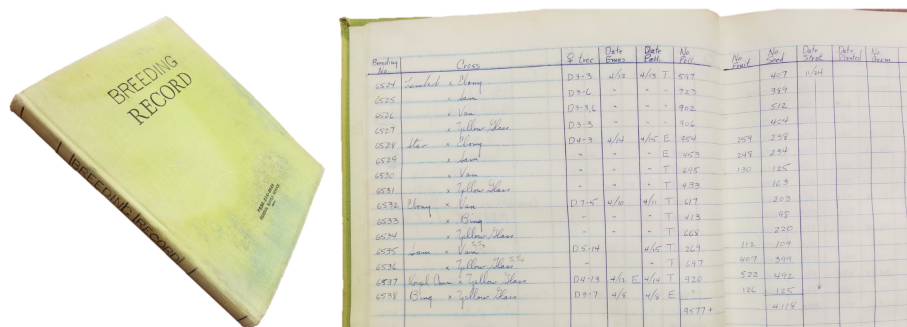 BREEDING
RECORD
BREEDING RECORD
Breeding No. Cross ♀ tree Date Emas. Date Poll. No. Poll. No. Fruit No. Seed Date Strat. Date Planted No. Germ.
6524 Lambert x Ebony D3-3 4/12 4/13 T 597 407 11/24
6525 x Sam D3-6 " " " 723 389
6526 x Van D3-3,6 " " " 902 512
6527 x Yellow Glass D3-3 " " " 906 404
6528 Star x Ebony D4-3 4/14 4/15 E 954 259 238
6529 " x Sam " " " E 453 248 234
6530 " x Van " " " T 695 130 125
6531 x Yellow Glass " " " T 433 163
6532 Ebony x Van D7-5 4/10 4/11 T 617 203
6533 x Bing " " " T 413 98
6534 x Yellow Glass " " " T 668 220
6535 Sam x Van D5-14 4/15 T 269 112 109
6536 x Yellow Glass " " T 697 407 399
6537 Royal Ann x Yellow Glass D4-13 4/13 E 4/14 T 920 522 492
6538 Bing x Yellow Glass D3-7 4/8 4/8 E " 126 125 "
9577+ 4118